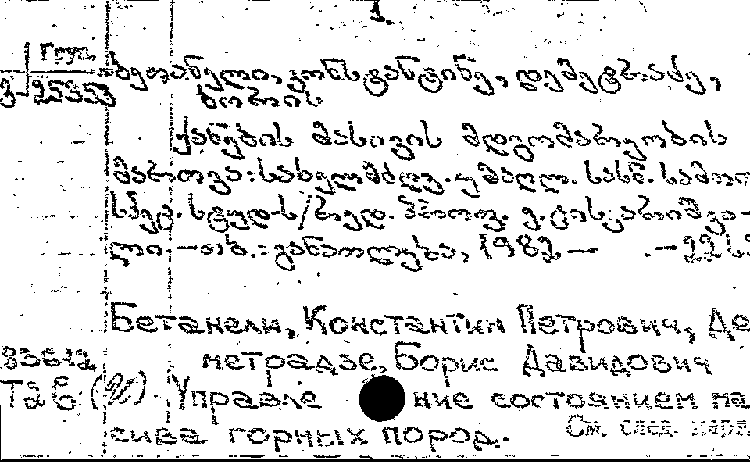 1.
Груз.
ბეთანელი, კონსტანტინე, დემეტრაძე,
3-25353 ბორის
ქანების მასივის მდგომარეობის
მართვა: სახელმძღვ. უმაღლ. სასწ. სამთო
სპეც. სტუდ-ს/რედ. პროფ. ვ.
ლი. – თბ.: განათლება, 1982. – . – 22 სმ
Бетанели, Константин Петрович, Де
33612 метрадзе, Борис Давидович
Т2 Управле ние состоянием мас
сива горных пород.
См. след. карт.